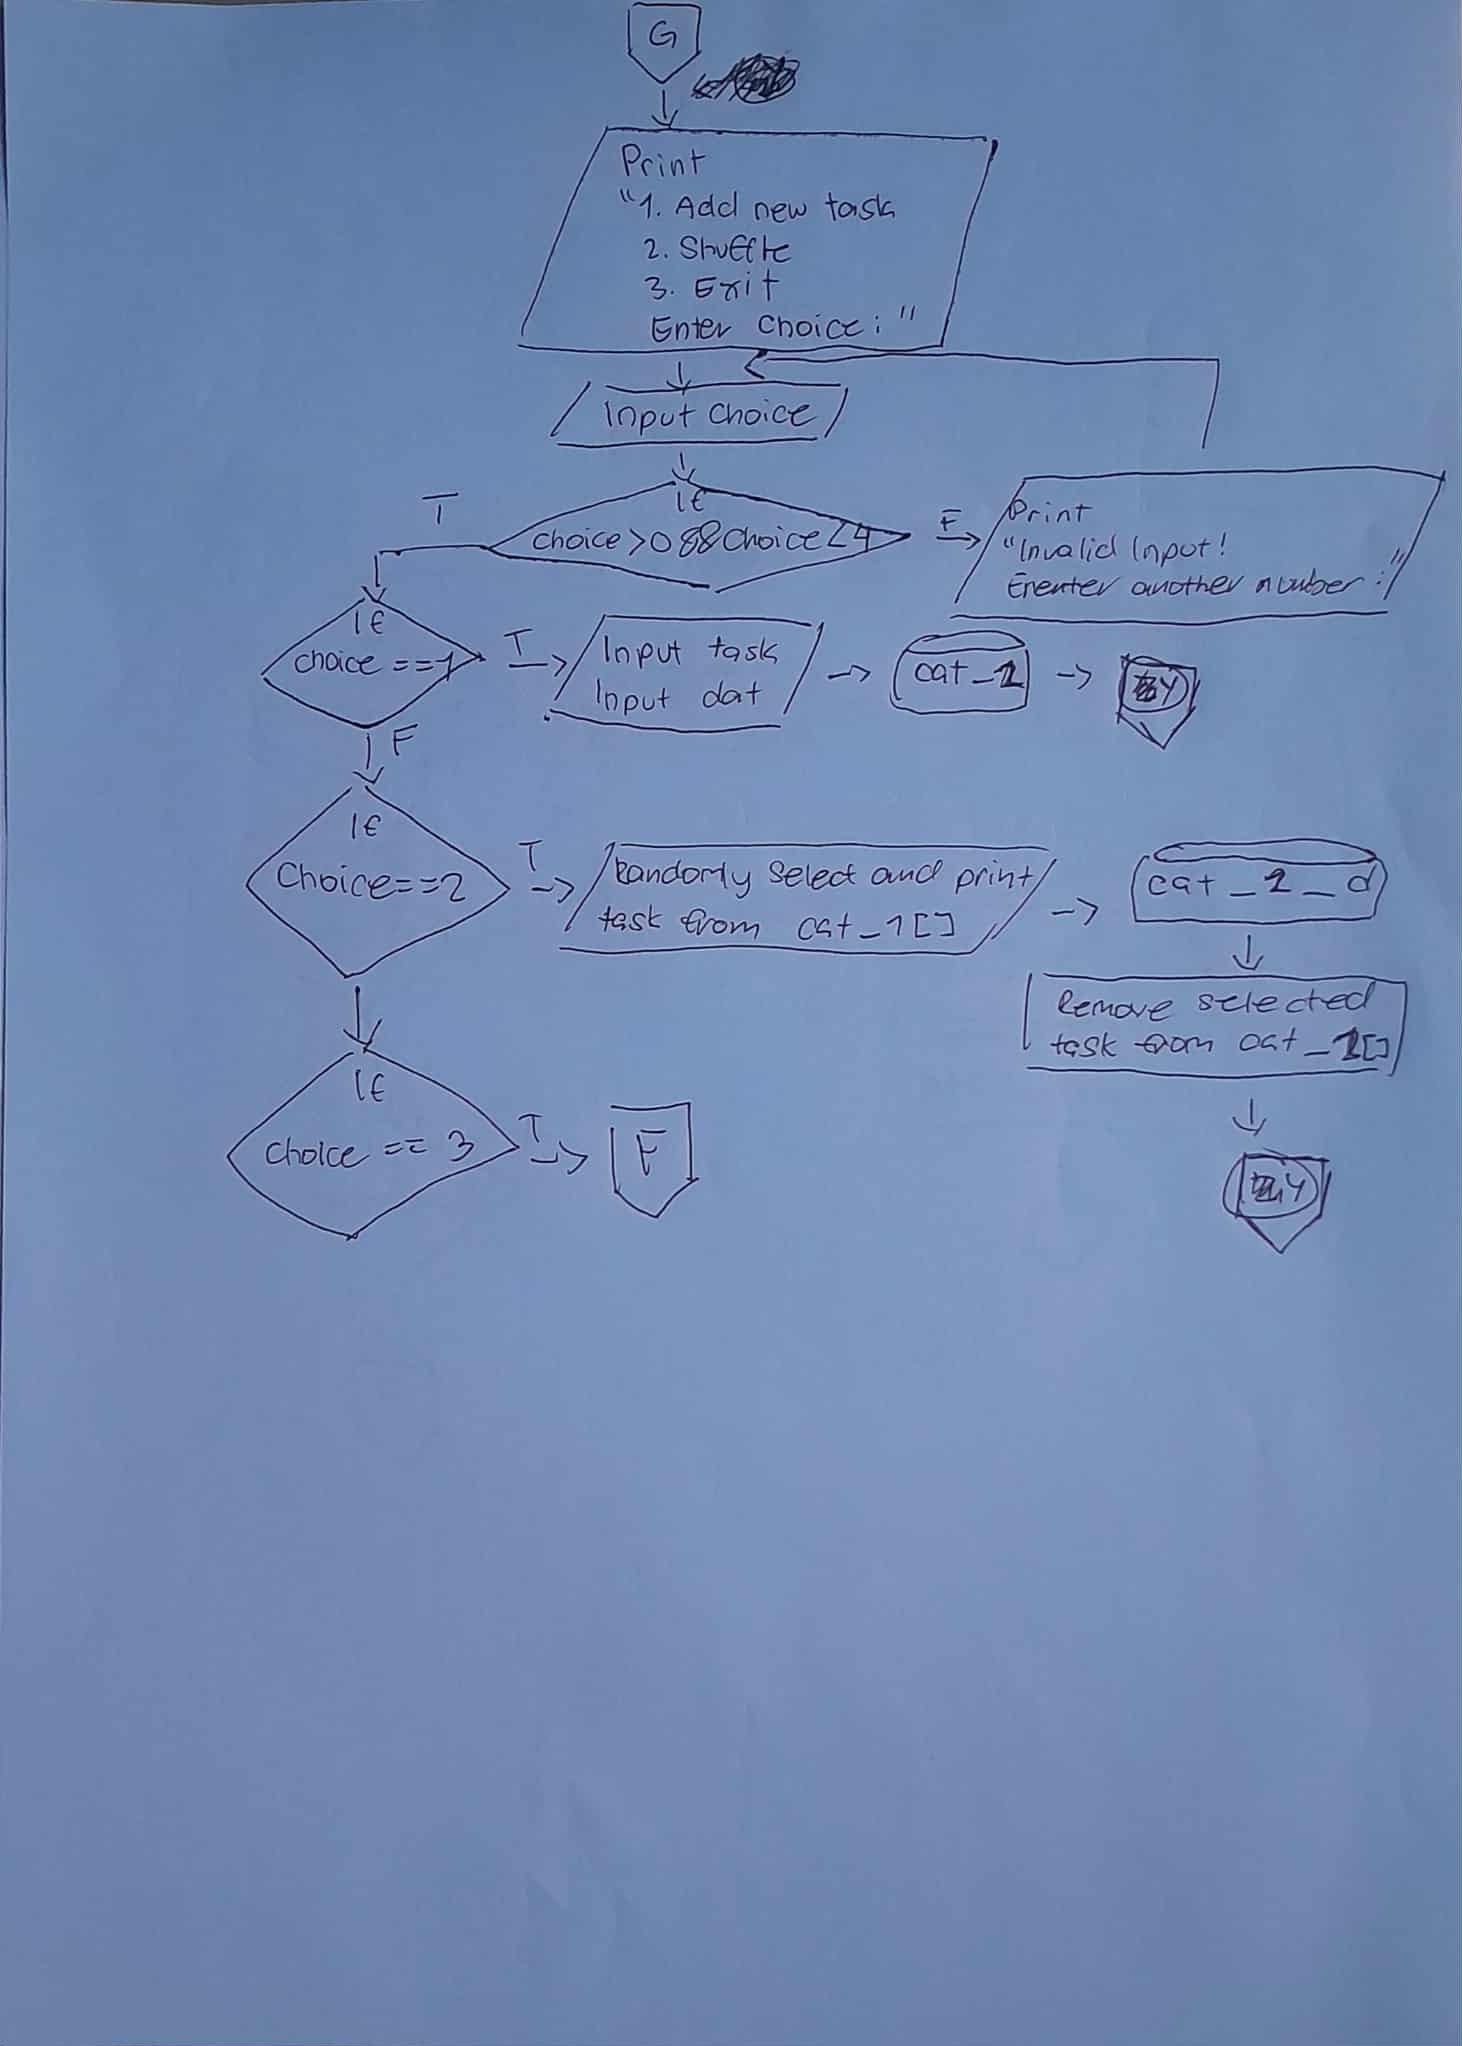 G
Print
"1. Add new task
2. Shuffle
3. Exit
Enter choice: "
Input choice
If
choice>0 && choice<4
T
F
Print
"Invalid Input!
Enenter another number: "
If
choice ==1
T
Input task
Input dat
cat_1
Y
F
If
Choice==2
T
Randomly select and print
task from cat_1[]
cat_1_d
Remove selected
task from cat_1[]
Y
If
choice == 3
T
F